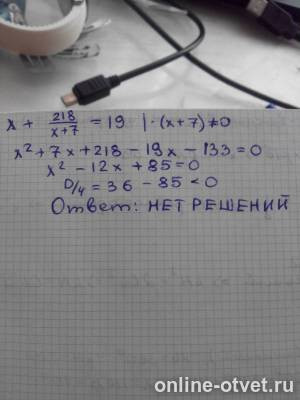 x + 218/(x+7) = 19 | · (x+7) ≠ 0
x² + 7x + 218 − 19x − 133 = 0
x² − 12x + 85 = 0
D/4 = 36 − 85 < 0
Ответ: НЕТ РЕШЕНИЙ
online-otvet.ru